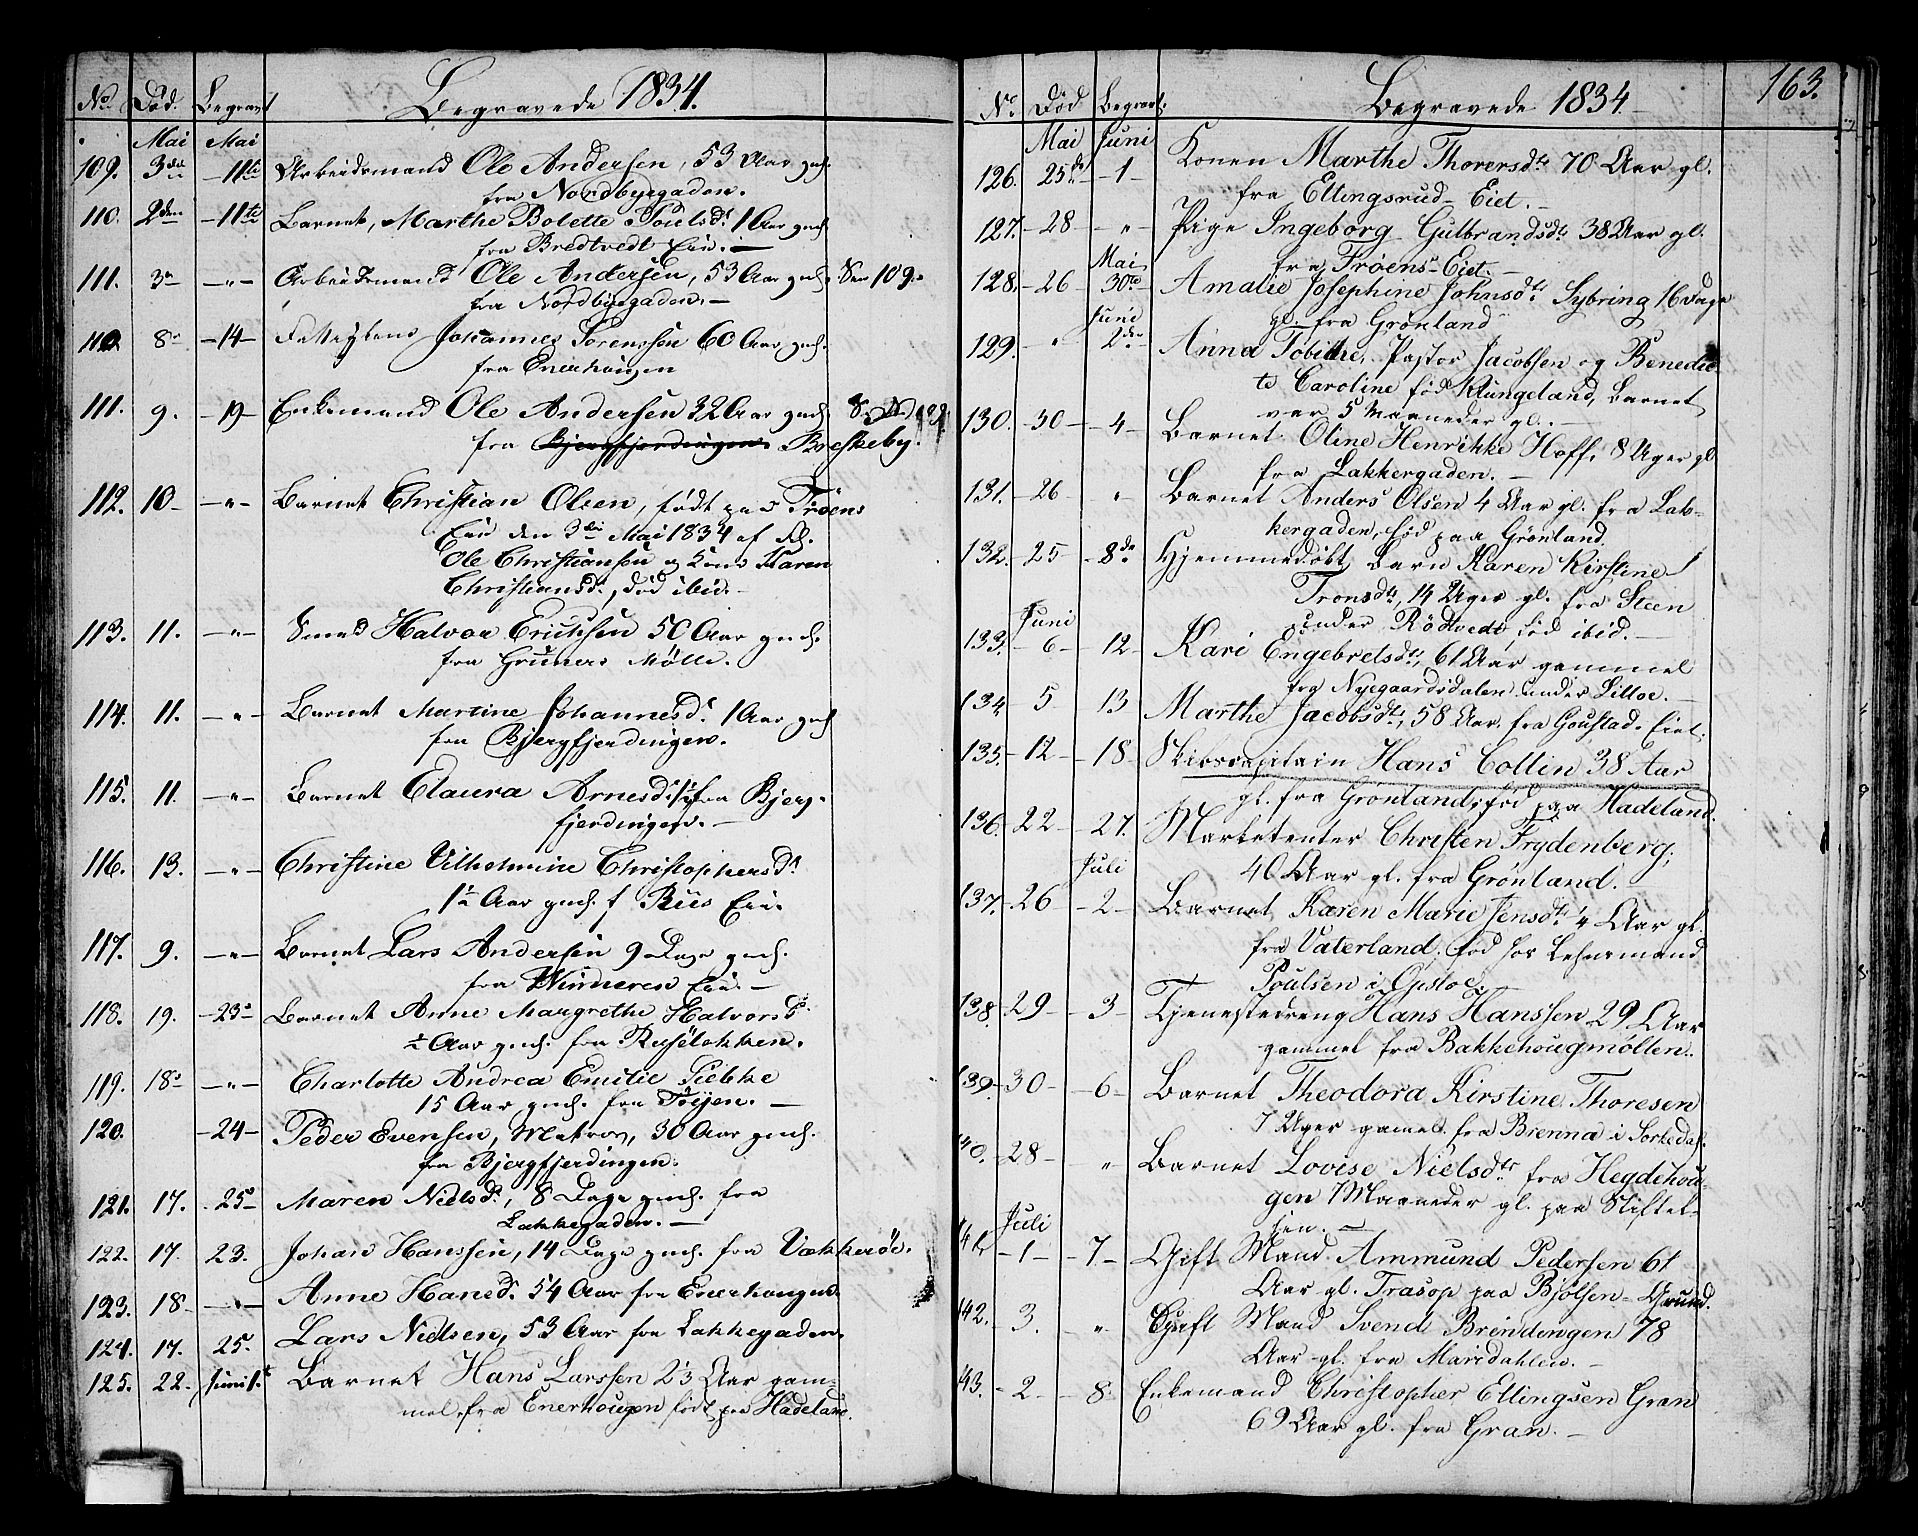 No. Død. Begravt Begravede 1834.
Mai Mai
109. 3die – 11te Arbeidsmand Ole Andersen, 53 Aar gml.
fra Nordbygaden.
110. 2den – 11te Barnet, Marthe Bolette Poulsdr 1 Aar gml.
fra Bredtvedt Eie. –
111. 3– – " – Arbeidsmand Ole Andersen, 53 Aar gml. See 109.
fra Nordbygaden. –
110. 8– – 14 – Johannes Sørenssen 60 Aar gml.
fra Enerhaugen
111. 9. – 19 – Enkemand Ole Andersen 32 Aar gml.
fra Bjergfjerdingen Breskeby.
112. 10 – – " – Barnet Christian Olsen, født paa Trøens
Eie den 3die Mai 1834 af
Ole Christiansen og Kone Karen
Christiansd., død ibid. –
113. 11. – " – Smed Halvor Ericksen 50 Aar gml.
fra Gruners Mølle.
114. 11. – " – Barnet Martine Johannesdr 1 Aar gml
fra Bjergfjerdingen.
115. 11. – " – Barnet Elaura Arnesd: ½ fra Bjerg-
fjerdingen. –
116. 13. – " – Christine Vilhelmine Christophersdr
1½ Aar gml. f Riis Eie.
117. 9. – " – Barnet Lars Andersen 9 Dage gml.
fra Eie. –
118. 19. – 23 – Barnet Anne Margrethe Halvorsd.
½ Aar gml. fra Ruseløkken.
119. 18 – " – Charlotte Andrea Emilie Siebke
15 Aar gml. fra Tøyen. –
120. – 24 – Peder Evensen, Matros, 30 Aar gml.
fra Bjergfjerdingen.
121. 17. . 25 – Maren Nielsd., 8 Dage gml. fra
Lakkegaden. –
122. 17. 23. Johan Hanssen, 14 Dage gml. fra Vækkerøe.
123. 18 – – " – Anne Hansd. 54 Aar fra Enerhaugen.
124. 17. 25. Lars Nielsen, 53 Aar fra Lakkegaden.
125. 22. Juni 1. Barnet Hans Larssen 23 Aar gam-
mel fra Enerhougen født paa Hadeland.
No. Død Begravt. Begravede 1834 163.
Mai Juni
126. 25de – 1 – Konen Marthe Thorersdtr 70 Aar gl.
fra Ellingsrud – Eiet. –
127. – 28 – " – Pige Ingeborg Gulbrandsdtr 38 Aar gl.
fra Trøens – Eiet. –
Mai
128. – 26 – 30te – Amalie Josephine Johnsdtr Sybring 16 Dage
gl. fra Grønland
Juni
129. " 2den Anna Tobithe, Pastor Jacobsen og Benedic-
te Caroline fød Klungeland, Barnet
var 5 Maaneder gl. –
130. – 30 – – 4 – Barnet Oline Henrikke Hoff. 8 Uger gl
fra Lakkergaden. –
131. – 26 " – Barnet Anders Olsen 4 Aar gl. fra Lak-
kergaden, fød paa Grønland.
132. – 25 – 8de Hjemmedøbt Barn Karen Kirstine
Tronsdtr, 14 Uger gl. fra Steen
under Rødtvedt fød ibid. –
Juni
133. – 6 – 12 – Kari Engebretsdtr, 61 Aar gammel
fra Nyegaardsdalen under Lilloe. –
134. 5 13 Marthe Jacobsdtr, 58 Aar. fra Goustad – Eiet.
135. – 12 – – 18 – Skibscapitain Hans Collin 38 Aar
gl. fra Grønland, fød paa Hadeland.
136. 22 – – 27. Marketenter Christen Frydenberg;
40 Aar gl. fra Grønland.
Juli
137. – 26 – 2 – Barnet Karen Marie Jensdtr 4 Aar gl.
fra Vaterland; fød hos Lehnsmand
Poulsen i Opsloe.
138. – 29 – – 3 – Tjenestedreng Hans Hanssen 29 Aar
gammel fra Bakkehougmøllen.
139. – 30 – – 6 – Barnet Theodora Kirstine Thoresen
7 Uger gamel. fra Brenna i Sørkedal.
40. – 28 – " Barnet Lovise Nielsdtr fra Hegdehou-
gen 7 Maaneder gl. paa Stiftel-
sen. –
Juli
41. – 1 – – 7 – Gift Mand Ammund Pedersen 61
Aar gl. Trasop paa Bjølsen – Grund.
42. – 3. " Gift Mand Svend Brendengen 78
Aar gl. fra Maridahlen. –
43. – 2 – – 8. Enkemand Christopher Ellingsen Gran
69 Aar gl. fra Gran. –